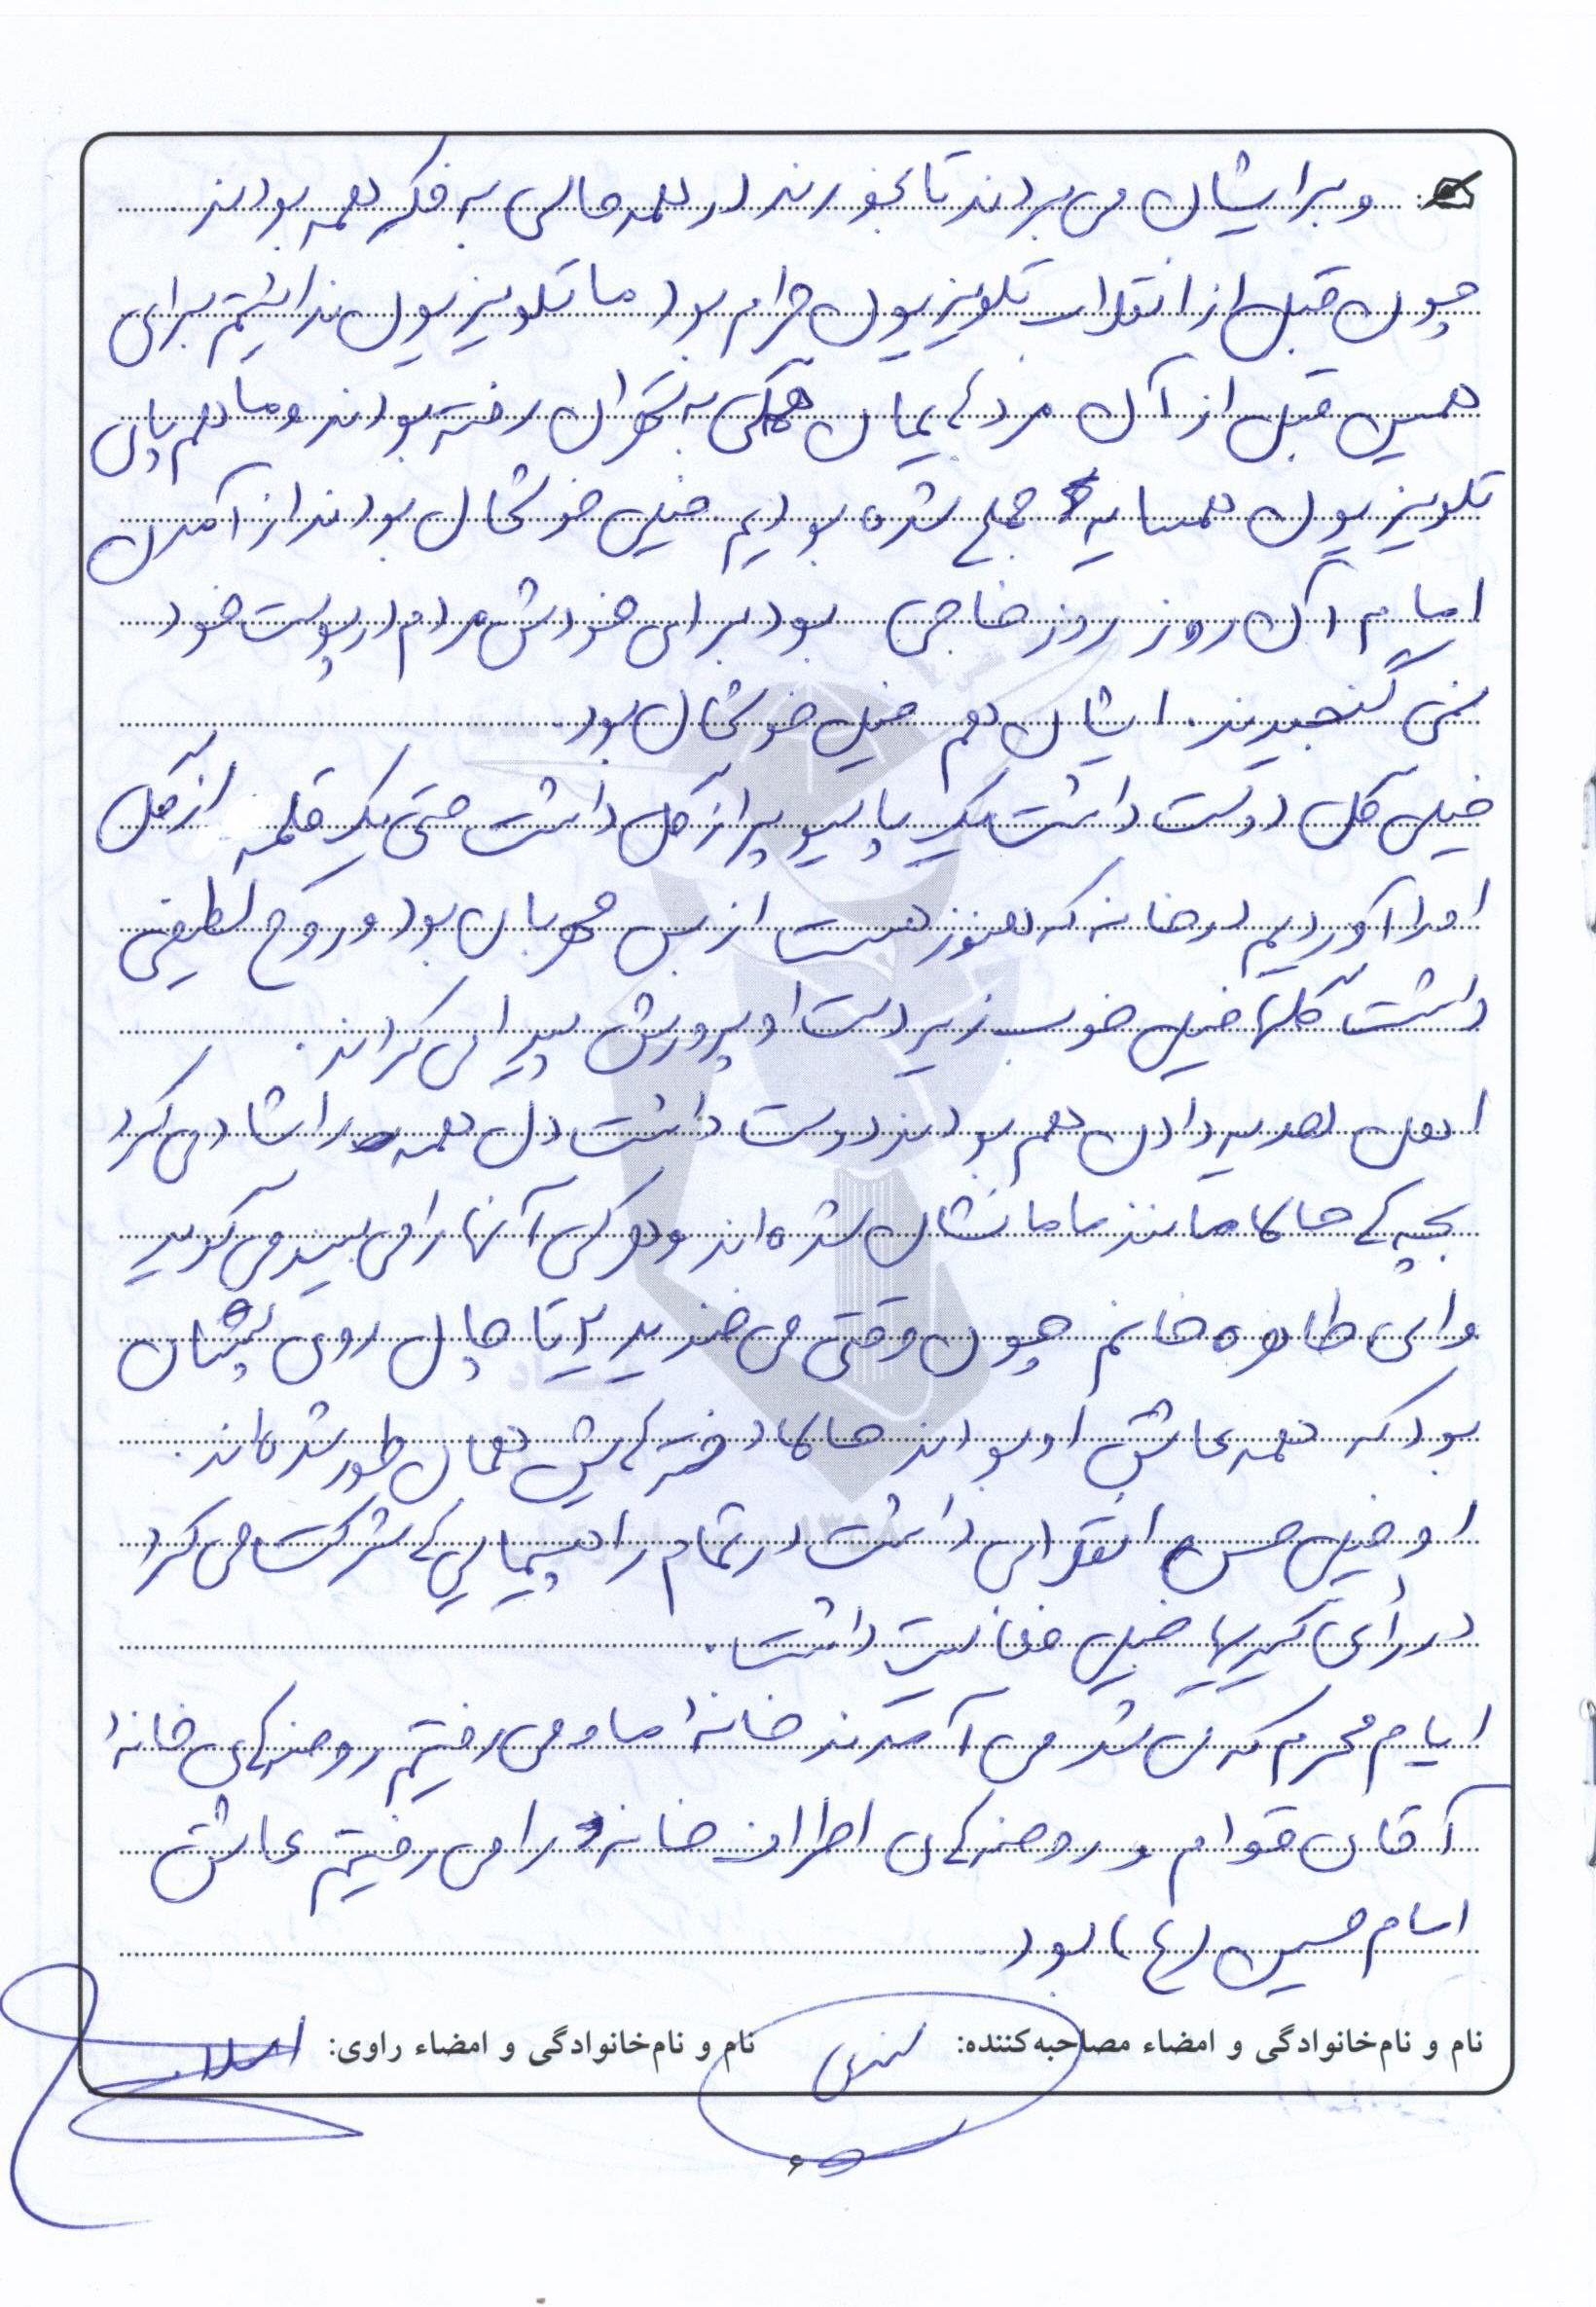 و برایشان می بردند تا بخورند در همه حالی به فکر همه بودند
چون قبل از انقلاب تلویزیون حرام بود ما تلویزیون نداشتیم برای
همین قبل از آن مردهایمان همگی به تهران رفته بودند و ما هم پای
تلویزیون همسایه جمع شده بودیم خیلی خوشحال بودند از آمدن
امام آن روز روز خاصی بود برای خودش مردم در پوست خود
نمی گنجیدند. ایشان هم خیلی خوشحال بود.
خیلی گل دوست داشت یک پاسیو پر از گل داشت حتی یک قلمه از گل
او را آوردیم در خانه که هنوز هست از بس مهربان بود و روح لطیفی
داشت گلها خیلی خوب زیر دست او پرورش پیدا می کردند.
اهل هدیه دادن هم بودند دوست داشت دل همه را شاد می کرد
بچه های حالا مانند مامانشان شده اند و هر کس آنها را می بیند می گوید
وای طاهره خانم چون وقتی می خندید ۲ تا چال روی لپشان
بود که همه عاشق او بودند حالا دخترهایش همان طور شده اند.
او خیلی حس انقلابی داشت در تمام راهپیمایی ها شرکت می کرد
در رأی گیریها خیلی فعالیت داشت.
ایام محرم که می شد می آمدند خانه ما و می رفتیم روضه های خانه
آقای قوام و روضه های اطراف خانه را می رفتیم عاشق
امام حسین (ع) بود
نام و نام‌خانوادگی و امضاء مصاحبه‌کننده: نام و نام‌خانوادگی و امضاء راوی:
۶